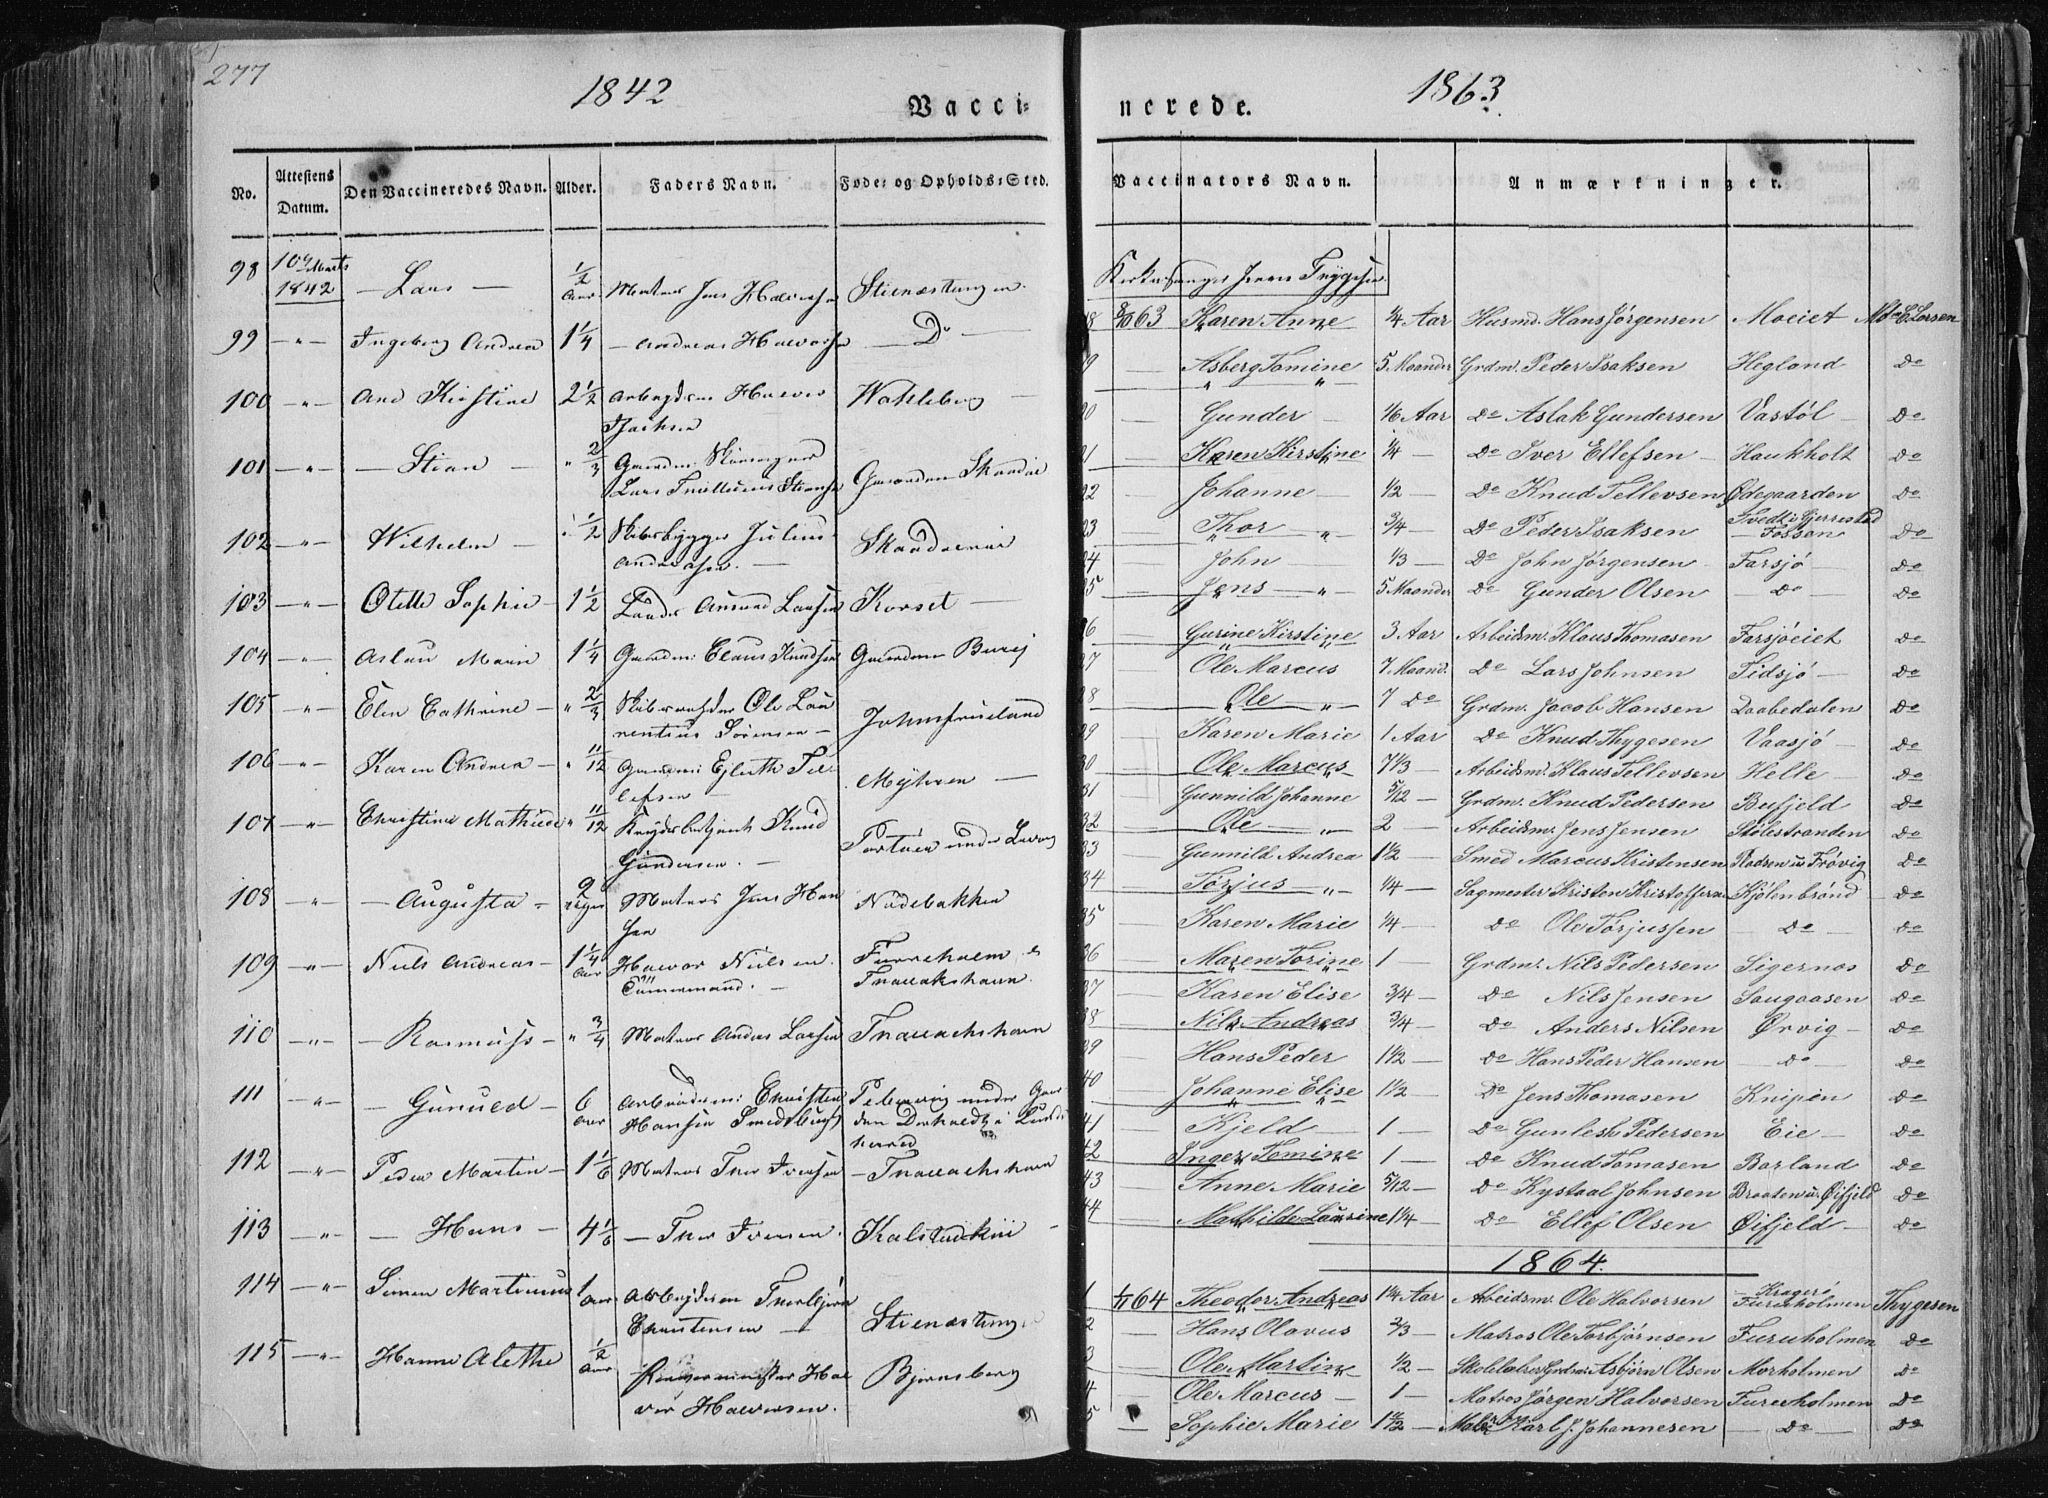 277
1842
Vacci-
No. Attestens Datum. Den Vaccineredes Navn. Alder. Faders Navn. Føde- og Opholds-Sted.
98 10de Marts 1842 – Lars – 1/2 Aar Matros Jens Halvorsen Stienstangen.
99 –"– Ingeborg Andrea 1 1/4 – Andreas Halvorsen – Do –
100 –"– Ane Kirstine 2 1/2 Arbeidsm Halvor Isachsen Wahlsberg –
101 –"– – Stian – " 2/3 Gaardm: Lars Stiansen Gaarden Skaadøe
102 –"– Wilhelm – " 1/2 Skibsbygger Julius Andreasen. – Skaadøe
103 –"– Otelle Sophie – 1 1/2 Lods Amund Larsen Korset –
104 –"– Aslau Marie 1 1/4 Gaardm: Claus Knudsen Gaarden Burøj
105 –"– Elen Cathrine – " 2/3 Ole Laurentius Sørensen – Johnsfrueland
106 –"– Karen Andrea – " 11/12 Gaardm: Ejleth Tellefsen – Myhren –
107 –"– Christine Mathilde " 11/12 Krydsbetjent Knud Gundersen. – under Levang
108 –"– – Augusta – 9 Uger Matros Jens Hansen Nadebakken
109 –"– Niels Andreas – 1 1/4 Aar Halvor Nielsen Tømmermand. – Furreholm &
110 –"– – Rasmus – " 3/4 Matros Anders Larsen
111 –"– – Gunild – 6 Aar Arbeidsm: Christen Hansen under Gaarden i
112 –"– Peder Martin – 1 1/6 Matros Thor Iversen –
113 –"– – Hans – 4 1/6 – Thor Iversen. Kalstadkiil
114 –"– Simon Martinius 1 Aar Arbeidsm Thorbjørn Christensen – Stienstangen
115 –"– Hanne Alethe 1/2 Aar Halvor Halvorsen. Bjørnsberg
1863.
nerede.
Vaccinators Navn. Anmærkninger.
Kirkesanger Jens Thygesen
18 8/10 63 Karen Anne 1/4 Aar Husmd. Hans Jørgensen Moeiet Md. E. Larsen
19 — Asberg Tomine 5 Maander Grdm. Peder Isaksen Hegland do
20 — Gunder 1/6 Aar do Aslak Gundersen Vastøl do
21 — Karen Kirstine 1/4 — do Iver Ellefsen Haukholt do
22 — Johanne 1/2 — do Knud Tellevsen Ødegaarden do
23 — Thor 3/4 — do Peder Isaksen Svedt i Gjerrestad – Fossen do
24 — John 1/3 do John Jørgensen Farsjø do
25 — Jens 5 Maander do Gunder Olsen — do — do
26 — Gurine Kirstine 3 Aar Arbeidsm. Klaus Thomasen Farsjøeiet do
27 — Ole Marcus 7 Maand. do Lars Johnsen Tidsjø do
28 — Ole 7 do Grdm. Jacob Hansen Daabedalen do
29 — Karen Marie 1 Aar do Knud Thygesen Vaasjø do
30 — Ole Marcus 7 1/3 — Arbeidsm. Klaus Tellevsen Helle do
31 — Gunnild Johanne 5/12 — Grdm. Knud Pedersen Bufjeld do
32 — Ole 2 — Arbeidsm. Jens Jensen Stølestranden do
33 — Gunnild Andrea 1 1/2 Smed Marcus Kristensen u Frøvig do
34 — Tørjus 1/4 — Sagmester Kristen Kristoffersen Kjølenbrønd do
35 — Karen Marie 1/4 do Ole Tørjussen — do — do
36 — Maren Torine 1 Grdm. Nils Pedersen Sigernæs do
37 — Karen Elise 3/4 — do Nils Jensen Saugaasen do
38 — Nils Andreas 3/4 — do Anders Nilsen Ørvig do
39 — Hans Peder 1 1/2 — do Hans Peder Hansen — do — do
40 — Johanne Elise 1 1/2 — do Jens Thomasen Knipen do
41 — Kjeld 1 — do Gunlesh Pedersen Eie — do
42 — Inger Tomine 1 — do Knud Tomasen Barland do
43 — Anne Marie 5/12 — do Kystaal Johnsen Braaten u. Øifjeld do
44 — Mathilde Laurine 1 1/4 — do Ellef Olsen Øifjeld do
1864.
1 64 Theodor Andreas 1 1/4 Aar Arbeidsm. Ole Halvorsen Kragerø Furuholmen Thygesen
2 — Hans Olavus 2/3 — Matros Ole Torbjørnsen Furuholmen do
3 — Ole Martin 1/2 — Skolelærer Grdm. Asbjørn Olsen Morholmen do
4 — Ole Marcus 1 — Matros Jørgen Halvorsen Furuholmen do
5 — Sophie Marie Karl J. Johannesen — do — do